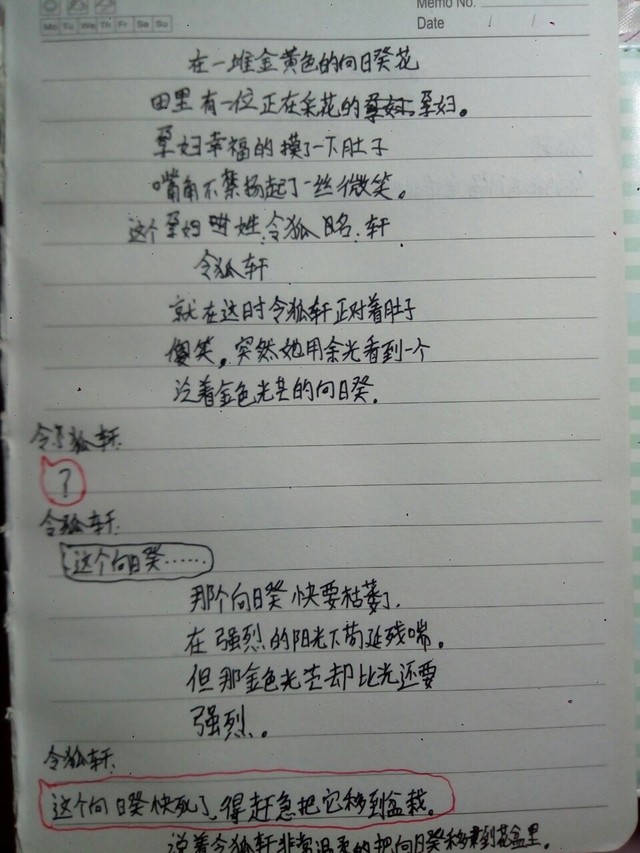 Memo No.
Mo Tu We Th Fr Sa Su
Date / /
在一堆金黄色的向日葵花
田里有一位正在采花的孕妇。
孕妇幸福的摸了一下肚子
嘴角不禁扬起了一丝微笑。
这个孕妇姓.令狐 名.轩
令狐轩
就在这时令狐轩正对着肚子
傻笑。突然她用余光看到一个
泛着金色光芒的向日葵.
令狐轩.
?
令狐轩.
这个向日葵……
那个向日葵快要枯萎了.
在强烈的阳光下苟延残喘。
但那金色光芒却比光还要
强烈.
令狐轩.
这个向日葵快死了.得赶急把它移到盆栽.
说着令狐轩非常温柔的把向日葵移到花盆里.